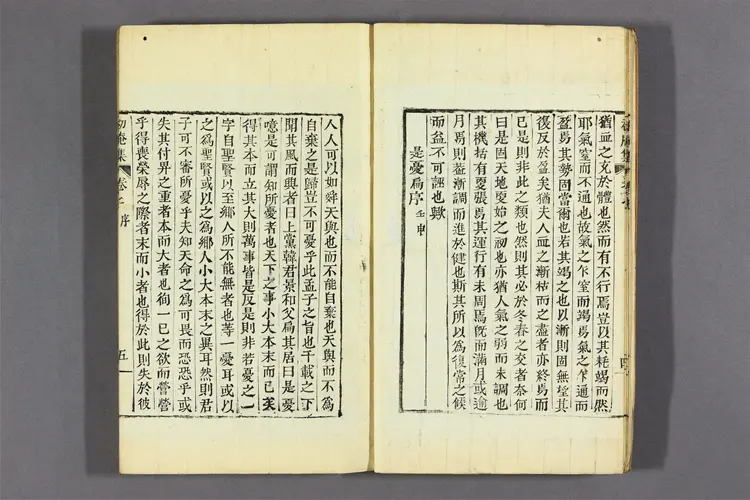 猶血之充於體也然而有不行焉豈以其耗竭而然
耶氣窒而不通也故氣之乍窒而竭勇氣之乍通而
盈勇其勢固當爾也若其竭之也以漸則固無望其
復反於盈矣猶夫人血之漸枯而之盡者亦終焉而
已是則非此之類也然則其必於冬春之交者奈何
曰是固天地更始之初也亦猶人氣之弱而未調也
其機括有更張焉其運行有未周焉旣而滿月或逾
月焉則益漸調而進於健也斯其所以為復常之候
而益不可誣也歟
是憂扁序 壬申
人人可以如舜天與也而不能自棄也天與而不為
自棄之是歸豈不可憂乎此孟子之旨也千載之下
聞其風而興者曰上黨韓君景和父扁其居曰是憂
噫是可謂知所憂者也天下之事小大本末而已矣
得其本而立其大則萬事皆是反是則非若憂之一
字自聖賢以至鄉人所不能無者也等一憂耳或以
之為聖賢或以之為鄉人小大本末之異耳然則君
子可不審所憂乎夫知天命之為可畏而恐恐乎或
失其付畀之重者本而大者也徇一己之欲而營營
乎得喪榮辱之際者末而小者也得於此則失於彼
初庵集 卷之 序 五